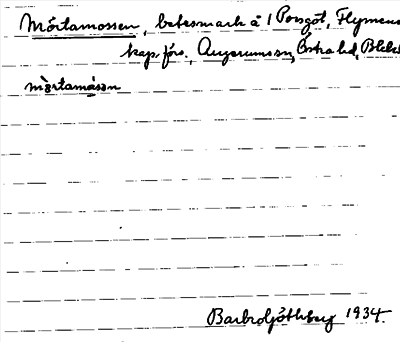 Mörtamossen, betesmark å 1 Porsgöl, Flymens
kap. förs., Augerums sn, Östra hd, Blek
mörtamåsən
Barbro Göthberg 1934.